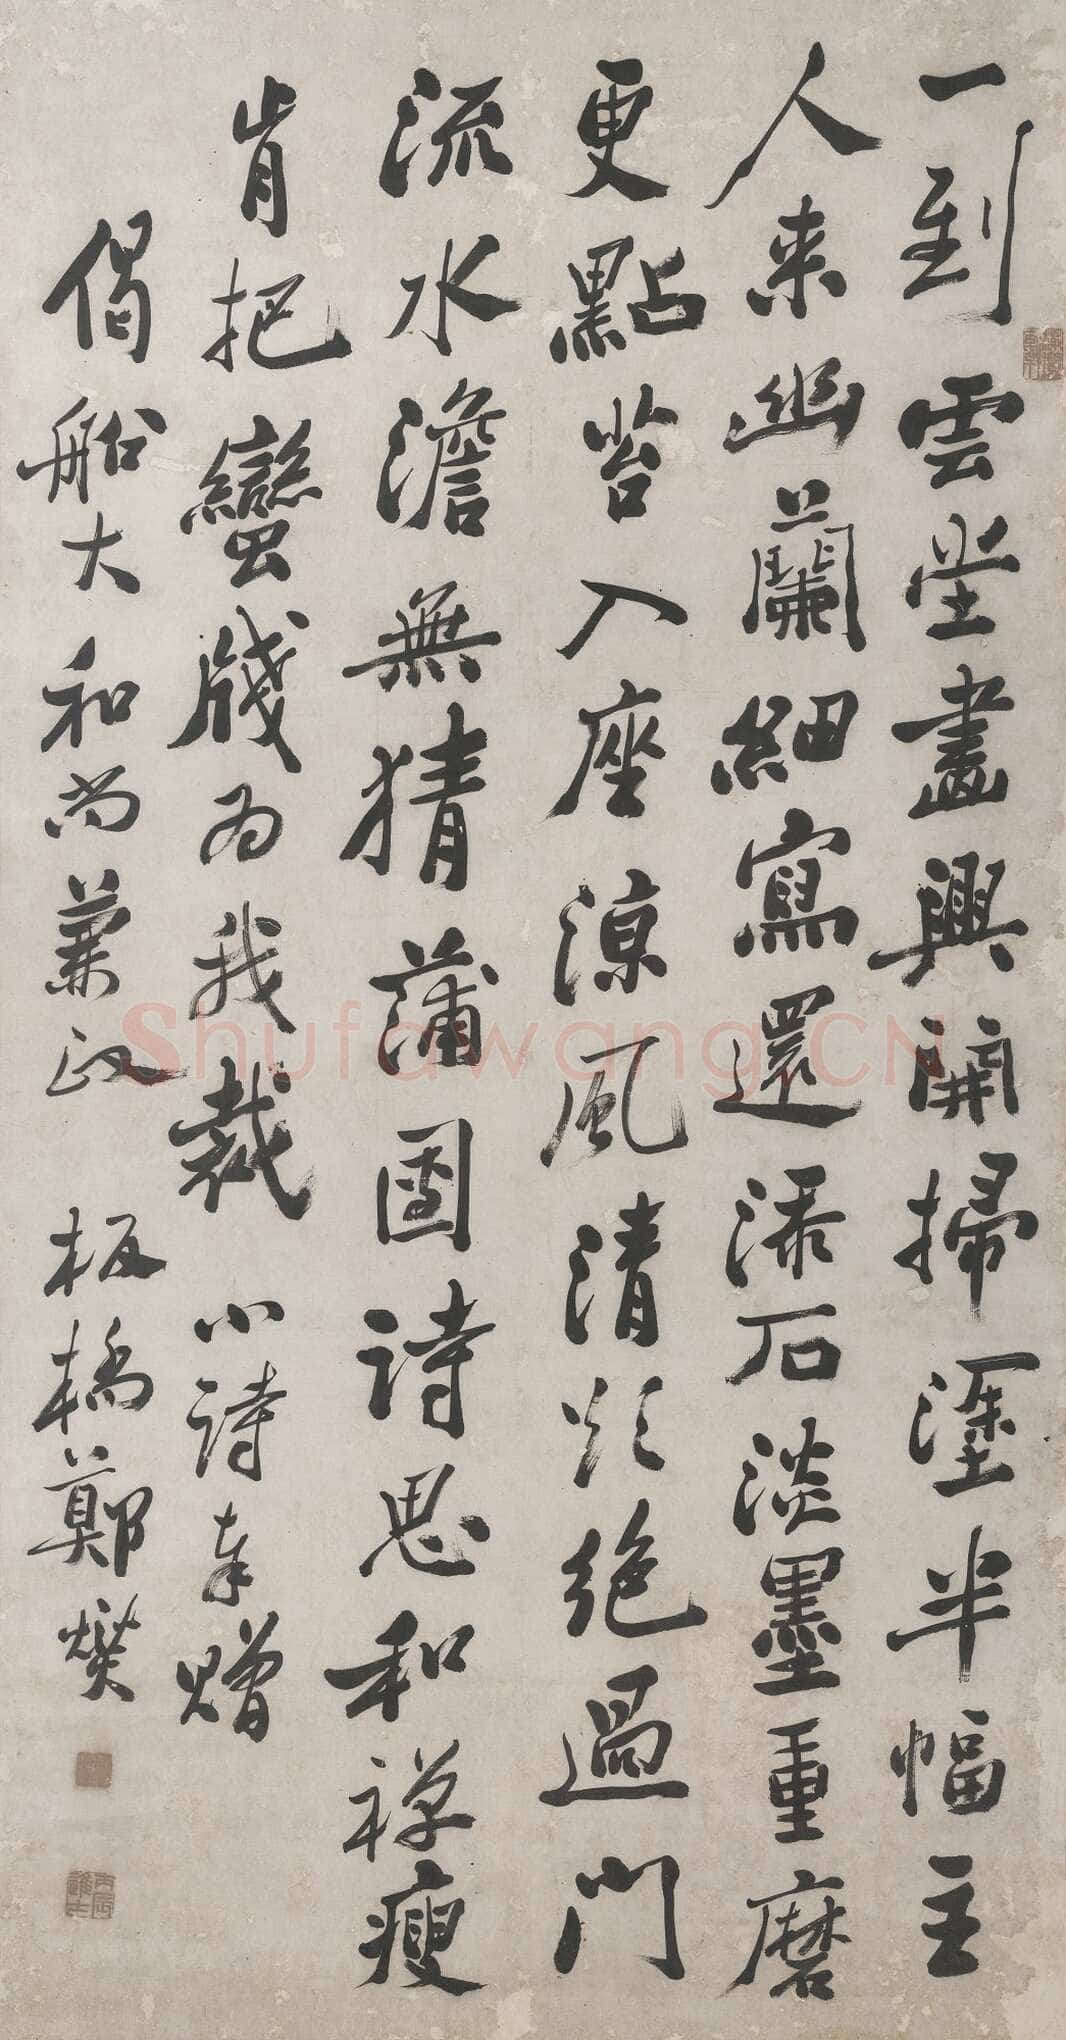 一到雲堂畫興開掃塗半幅主
人來幽蘭細寫還添石淡墨重磨
更點苔入座涼風清煩絕過門
流水澹無猜蒲團詩思和禪瘦
肯把蠻牋為我裁 小詩奉贈
偈船大和尚兼政 板橋鄭燮
丙辰進士
Shufawang.CN